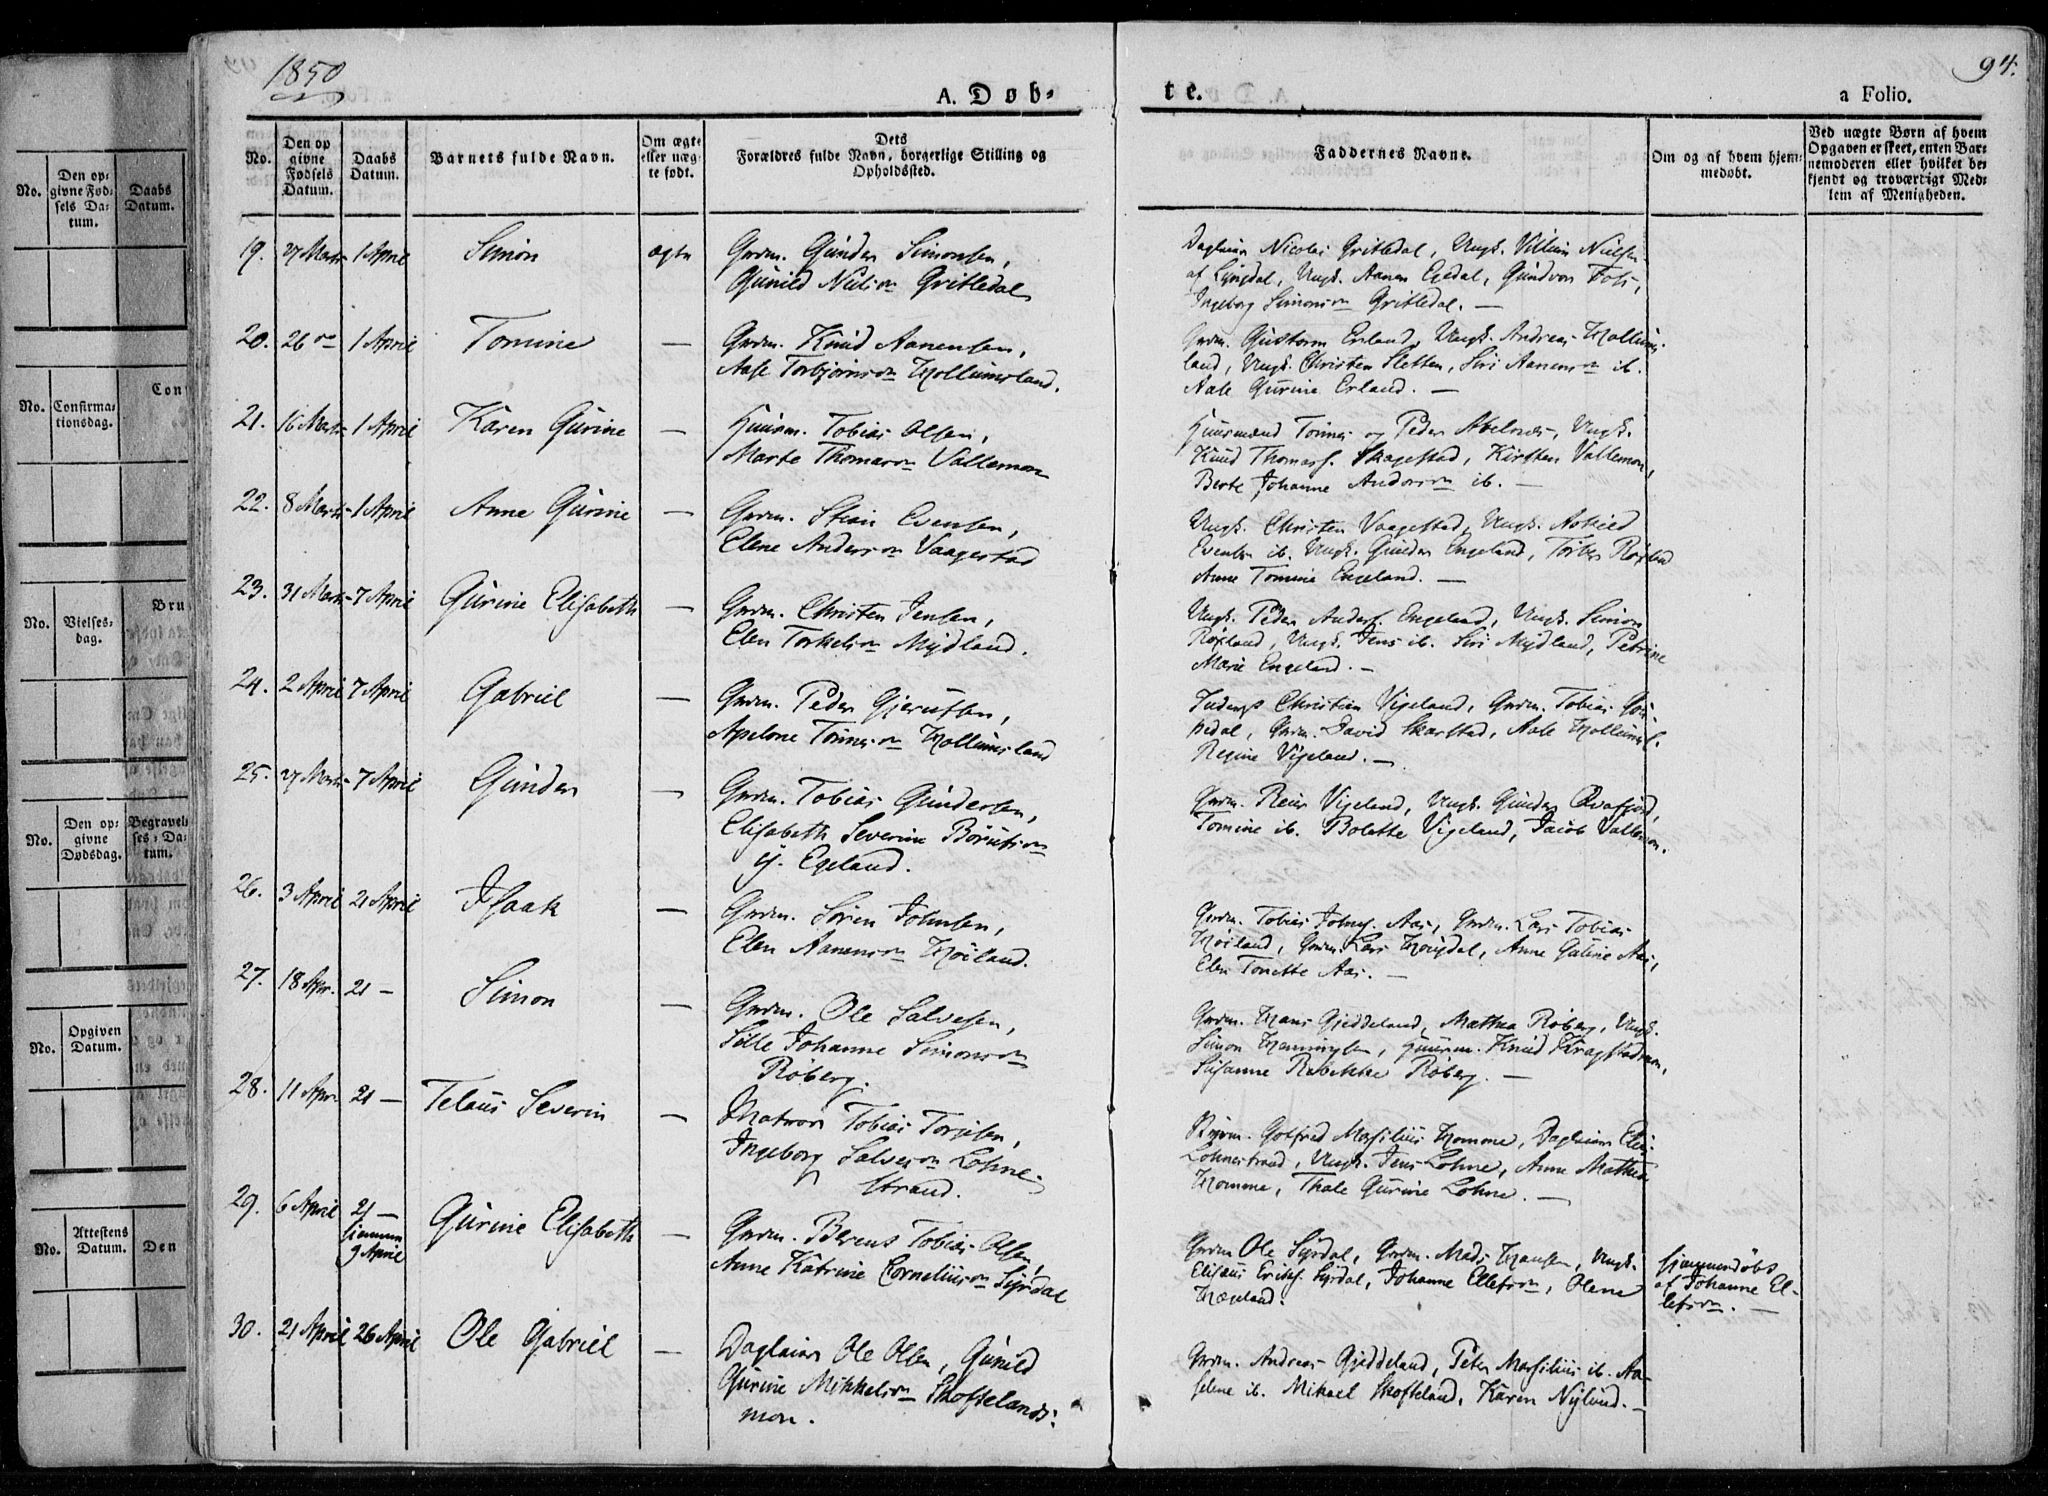 1850
94.
A. Døb-
te.
a Folio.
No.
Den op
givne
Fødsels
Datum.
Daabs
Datum.
Barnets fulde Navn.
Om ægte
eller uæg-
te født.
Dets
Forældres fulde Navn, borgerlige Stilling og
Opholdssted.
Faddernes Navne.
Om og af hvem hjem-
medøbt.
Ved uægte Børn af hvem
Opgaven er skeet, enten Bar-
nemoderen eller hvilket be-
kjendt og troværdigt Med-
lem af Menigheden.
19. 27 Marts 1 April Simon ægte Grdm. Gunder Simonsen,
Gunild Nielsdr Gritledal
Dagleier Nicolai Gritledal, Ungk. Villum Nielsen
af Lyngdal, Ungk. Aanen Egdal, Gundvor Foss,
Ingeborg Simonsdr Gritledal. —
20. 26 1 April Tomine — Grdm. Knud Aanensen,
Aase Torbjørnsdr Hollumsland.
Grdm. Guttorm Erland, Ungk. Andreas Hollums-
land, Ungk. Christen Sletten, Siri Aanensdr ib.
Aale Gurine Erland. —
21. 16 Marts 1 April Karen Gurine — Huusm. Tobias Olsen,
Marte Thomasdr Vallemon
Huusmænd Tønnes og Peder Abelnes, Ungk.
Knud Thomass. Skagestad, Kirsten Vallemon,
Berte Johanne Andersdr ib. —
22. 8 Marts 1 April Anne Gurine — Grdm. Stian Evensen,
Elene Andersdr Vaagestad
Ungk. Christen Vaagestad, Ungk. Askild
Evensen ib. Ungk. Gunder Engeland,
Anne Tomine Engeland. —
23. 31 Marts 7 April Gurine Elisabeth — Grdm. Christen Jensen,
Elen Torkelsdr Mydland.
Ungk. Peder Anders. Engeland, Ungk. Simon
Røxland, Ungk. Jens ib. Siri Mydland, Petrine
Marie Engeland. —
24. 2 April 7 April Gabriel — Grdm. Peder Gjerulfsen,
Apelone Tønnesdr Hollumsland
Christian Vigeland, Grdm. Tobias
Grdm. David Skarstad, Aale Hollumsl.
Regine Vigeland. —
25. 27 Marts 7 April Gunder — Grdm. Tobias Gundersen,
Elisabeth Severine
y. Egeland.
Grdm. Reier Vigeland, Ungk. Gunder Qvafjord,
Tomine ib. Bolette Vigeland, Jacob Vallemon.
26. 3 April 21 April Isaak — Grdm. Søren Johnsen,
Elen Aanensdr Høiland.
Grdm. Tobias Johns. Aas, Grdm. Lars Tobias
Høiland, Grdm. Lars Hougdal, Anne Guline Aas,
Elen Tonette Aas. —
27. 18 Apr. 21 — Simon — Grdm. Ole Salvesen,
Sille Johanne Simonsdr
Røberg.
Grdm. Hans Gjeddeland, Mathea Røberg, Ungk.
Simon Henningsen, Huusm. Knud Kragstadmon,
Susanne Rebekke Røberg. —
28. 11 Apr. 21 — Telaus Severin — Matros Tobias Torjesen,
Ingeborg Salvesdr Lohne-
strand.
Gotfred Marsilius Homme, Dagleier Elias
Lohnestrand, Ungk. Jens Lohne, Anne Mathea
Homme, Thale Gurine Lohne. —
29. 6 April 21 —
hjemme
9 April
Gurine Elisabeth — Grdm. Berent Tobias Olsen,
Anne Katrine Corneliusdr Syrdal
Grdm Ole Syrdal, Grdm. Mads Hansen, Ungk.
Elisæus Eriks. Syrdal, Johanne Ellefsdr, Olene
Hægeland.
hjemmedøbt
af Johanne El-
lefsdr. —
30. 21 April 26 April Ole Gabriel — Dagleier Ole Olsen, Gunild
Gurine Mikkelsdr Skoftelands-
mon.
Grdm. Andreas Gjeddeland, Peter Marsilius ib. Aa-
selene ib. Mikael Skofteland, Karen Nylund. —
No.
Den op-
givne Fød-
sels Da-
tum.
Daabs
Datum.
No.
Confirma-
tionsdag.
No.
Vielses-
dag.
No.
Den op-
givne
Dødsdag.
Begravel-
ses-Da-
tum.
No.
Opgiven
Datum.
No.
Attestens
Datum.
Den